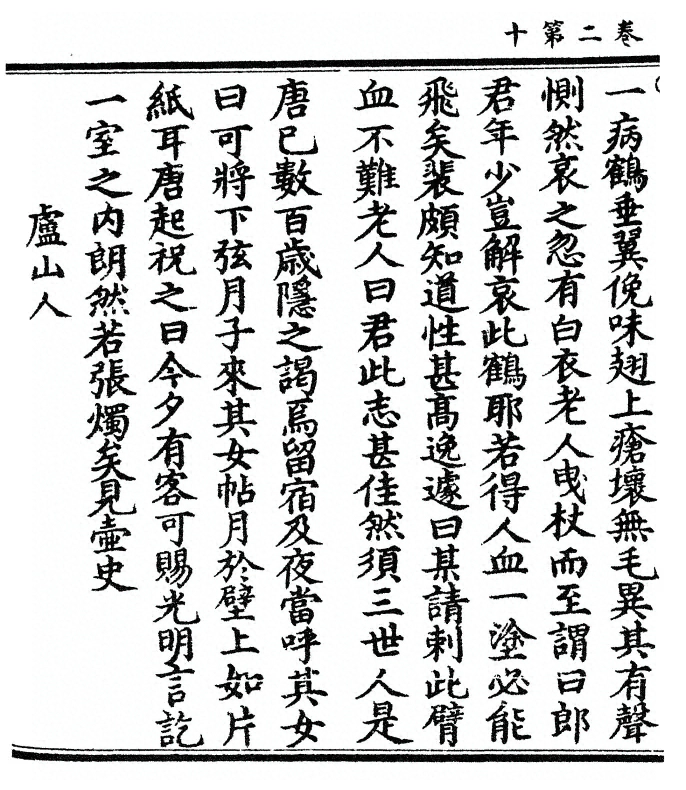 卷二第十
一病鶴垂翼俛咮翅上瘡壞無毛異其有聲
惻然哀之忽有白衣老人曳杖而至謂曰郎
君年少豈解哀此鶴耶若得人血一塗必能
飛矣裴頗知道性甚高逸遽曰某請刺此臂
血不難老人曰君此志甚佳然須三世人是
唐已數百歲隱之謁焉留宿及夜當呼其女
曰可將下弦月子來其女帖月於壁上如片
紙耳唐起祝之曰今夕有客可賜光明言訖
一室之內朗然若張燭矣見壺史
盧山人